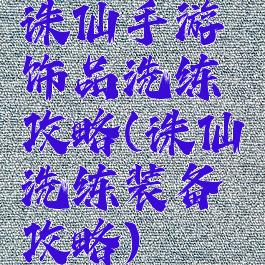 诛仙手游
饰品洗练
攻略(诛仙
洗练装备
攻略)